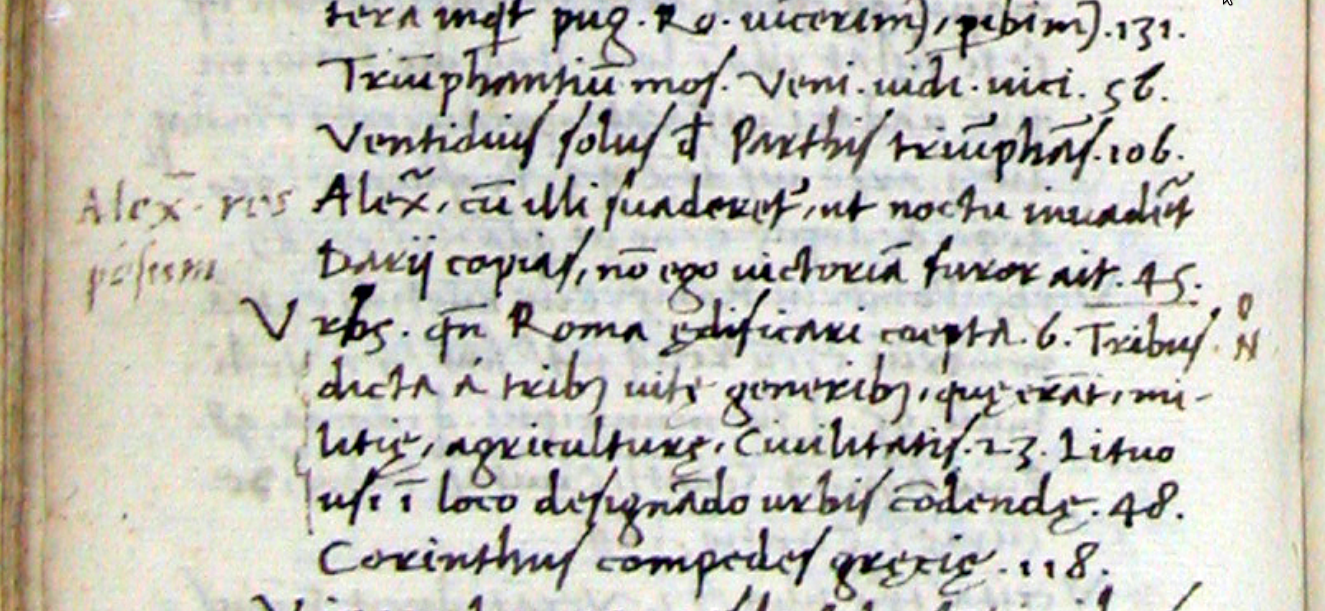 tera inqt pug. Ro. uicerim⁹, pibim⁹. 131.
Triūphantiū mos. Veni. uidi. uici. 56.
Ventidius solus đ Parthis triūphās. 106.
Alex̄. res Alex̃, cū illi suaderet², ut noctu inuadēt
Darij copias, nō ego uictoriā furor ait. 45.
Vrbs. qn̄ Roma ędificari coepta. 6. Tribus.
dicta á tribꝫ uitę generibꝫ, quę erāt, mi-
litię, agriculturę, Ciuilitatis. 23. Lituo
usi ī loco designādo urbis cōdendę. 48.
Corinthus compedes gręcię. 118.